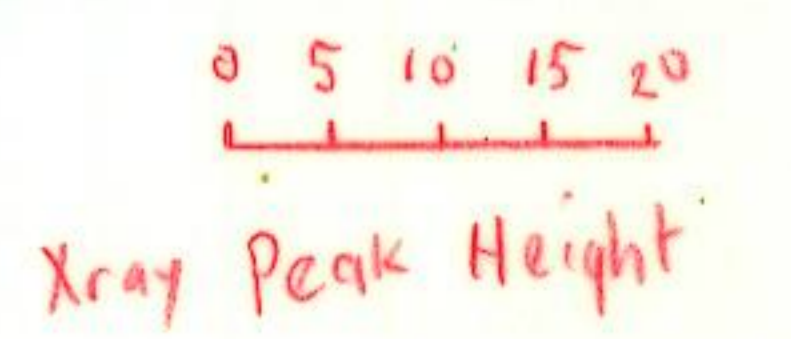 0 5 10 15 20
Xray Peak Height